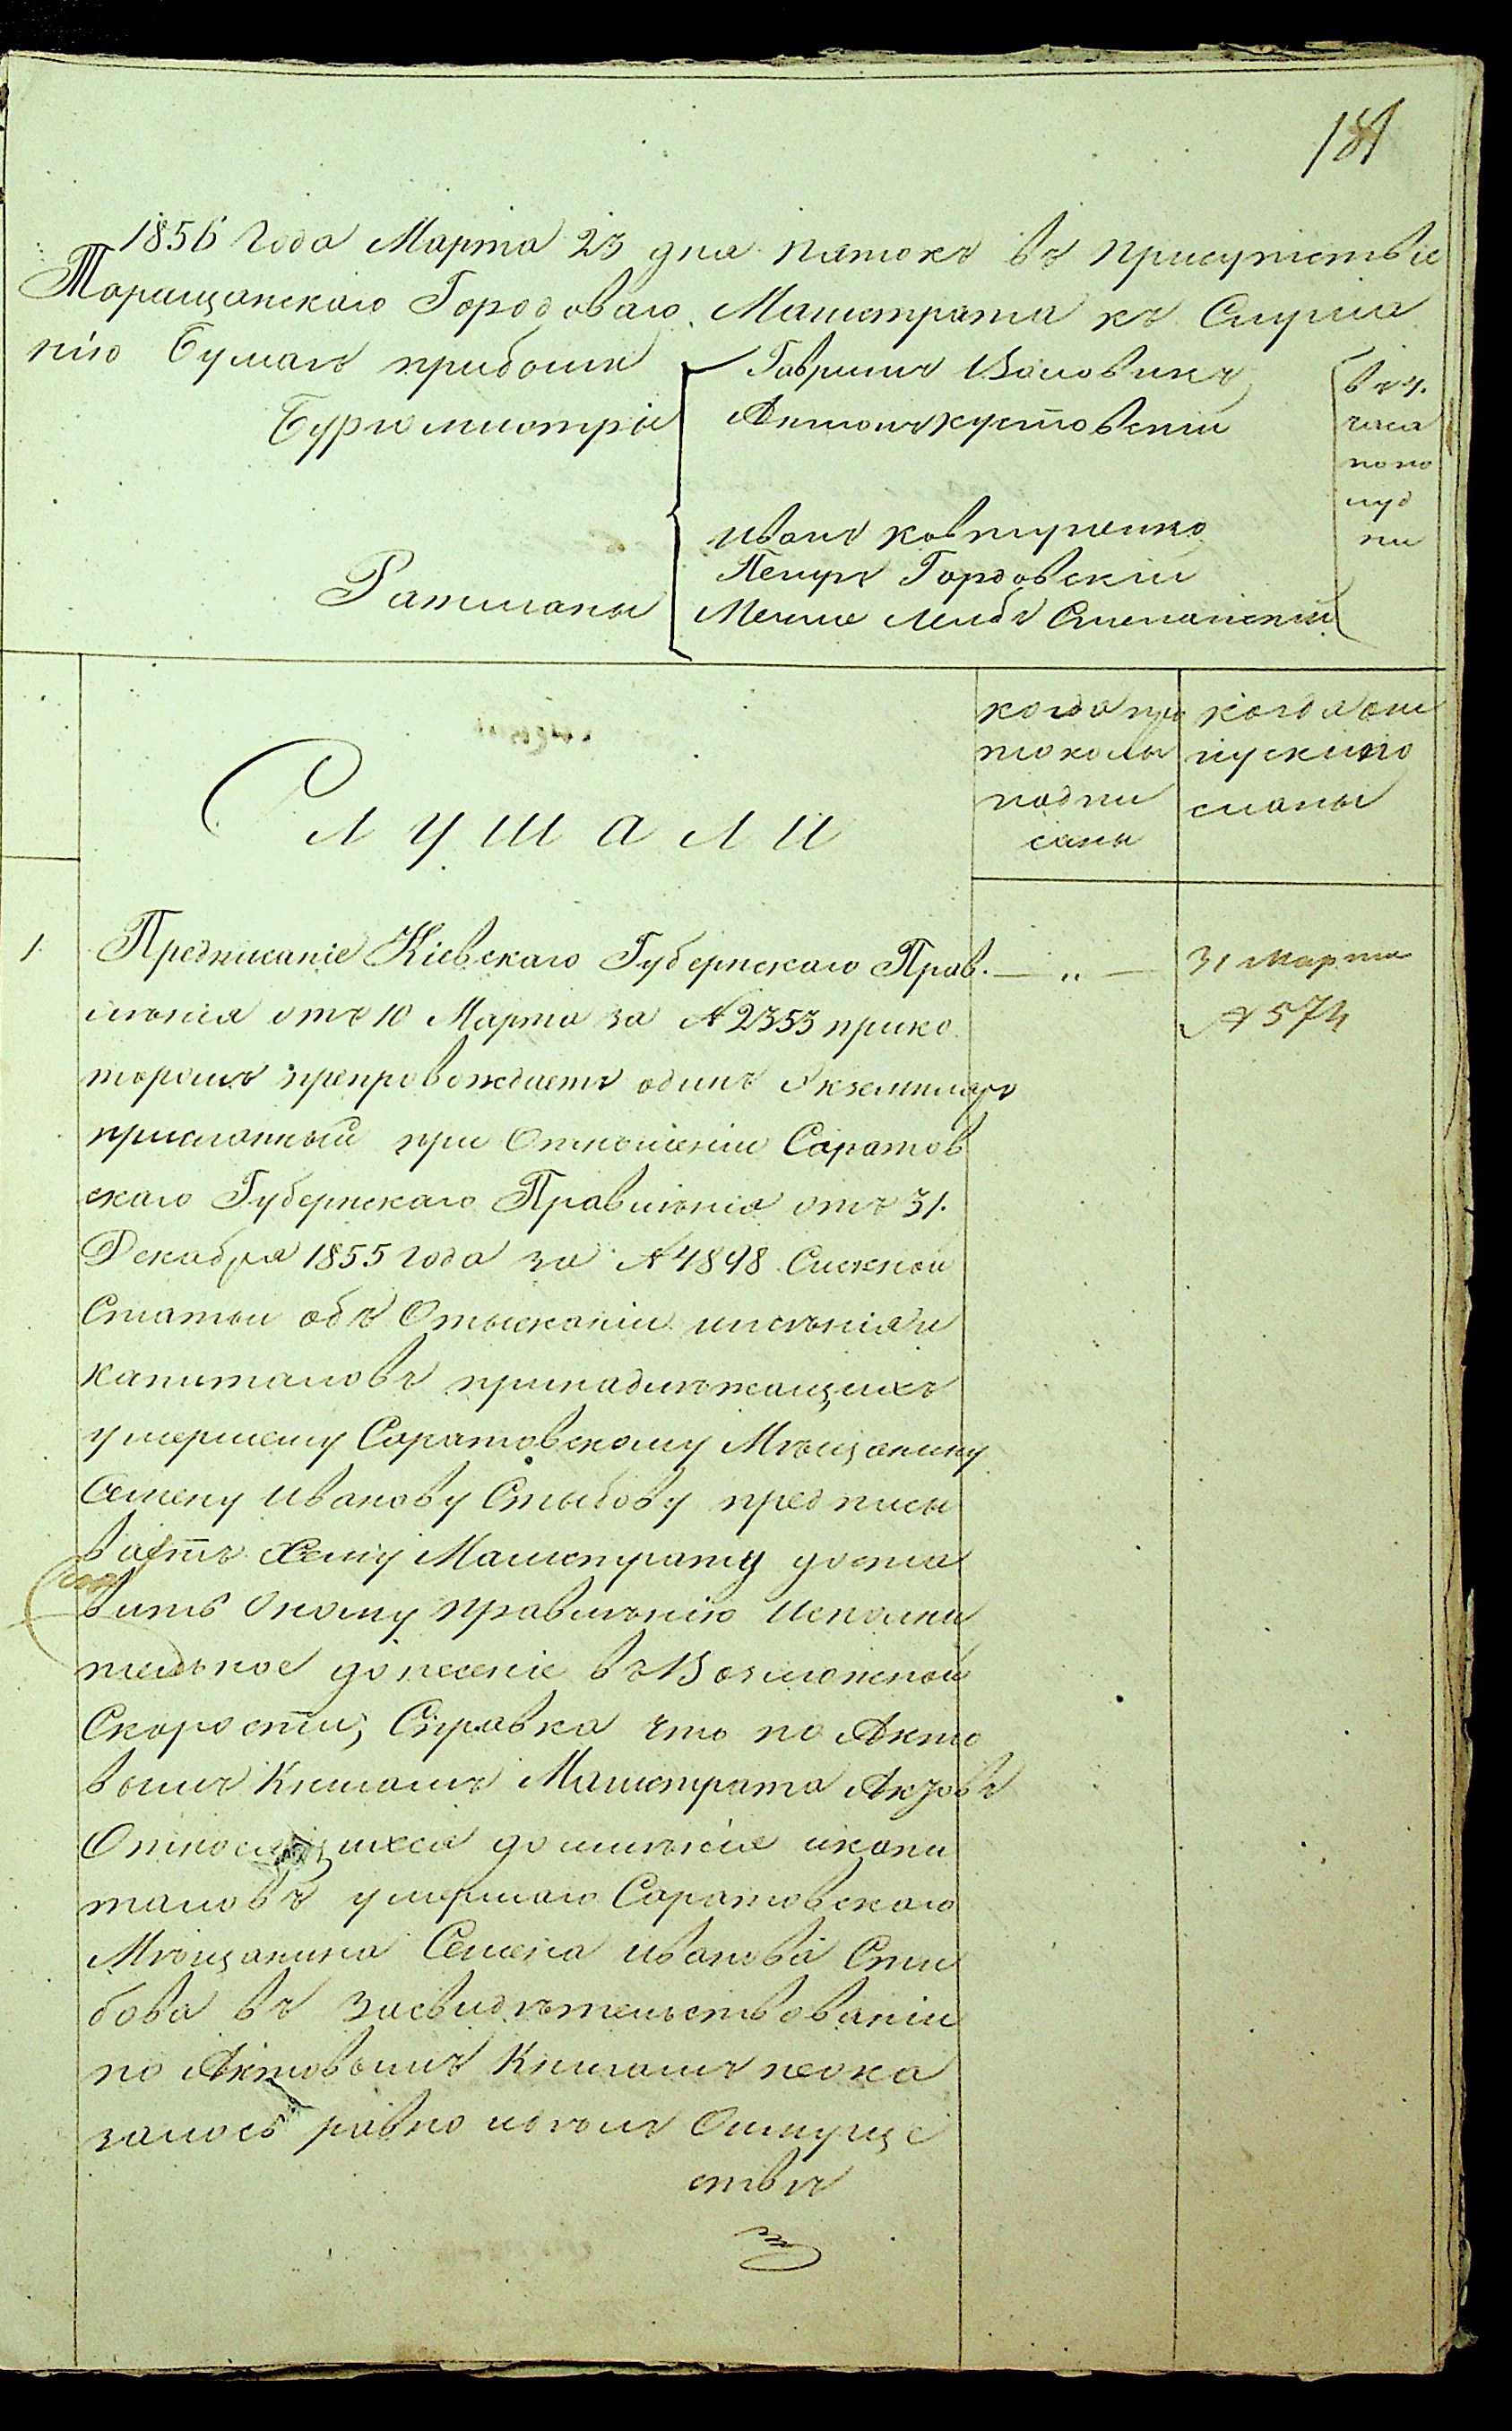 181
1856 года Марта 23 дня пятокъ въ присутствіе
Таращанскаго Городоваго Магистрата къ Слуша
нію бумагъ прибыли
Бургомистры
Гаврилъ Воловикъ
Антонъ Кустовскій
Ратманы
Иванъ Ковтуненко
Петръ Гордовскій
Мешие Лейбъ Степанскій
въ 4.
часа
попо
луд
ни
Слушали
когда про
токолы
подпи
саны
когда от
пуск и по
сланы
1.
Предписаніе Кіевскаго Губернскаго Прав.
ленія отъ 10 Марта за № 2353 при ко
торомъ препровождаетъ одинъ Экземпляръ
присланный при Отношеніи Саратов
скаго Губернскаго Правленія отъ 31.
Декабря 1855 года за № 4898 Сыскной
Статьи объ Отысканіи имѣнія и
капиталовъ принадлежащихъ
умершему Саратовскому Мѣщанину
Семену Иванову Стыбову предписы
ваетъ Сему Магистрату доста
вить Оному правленію Исполни
тельное донесеніе въ Возможной
Скорости; Справка что по Акто
вымъ Книгамъ Магистрата Актовъ
Относящихся до имѣнія и капи
таловъ умершаго Саратовскаго
Мѣщанина Семена Иванова Сты
бова въ засвидѣтельствованіи
по Актовымъ Книгамъ неока
залось равно и въ
ствѣ
— „ —
31 Марта
№ 574